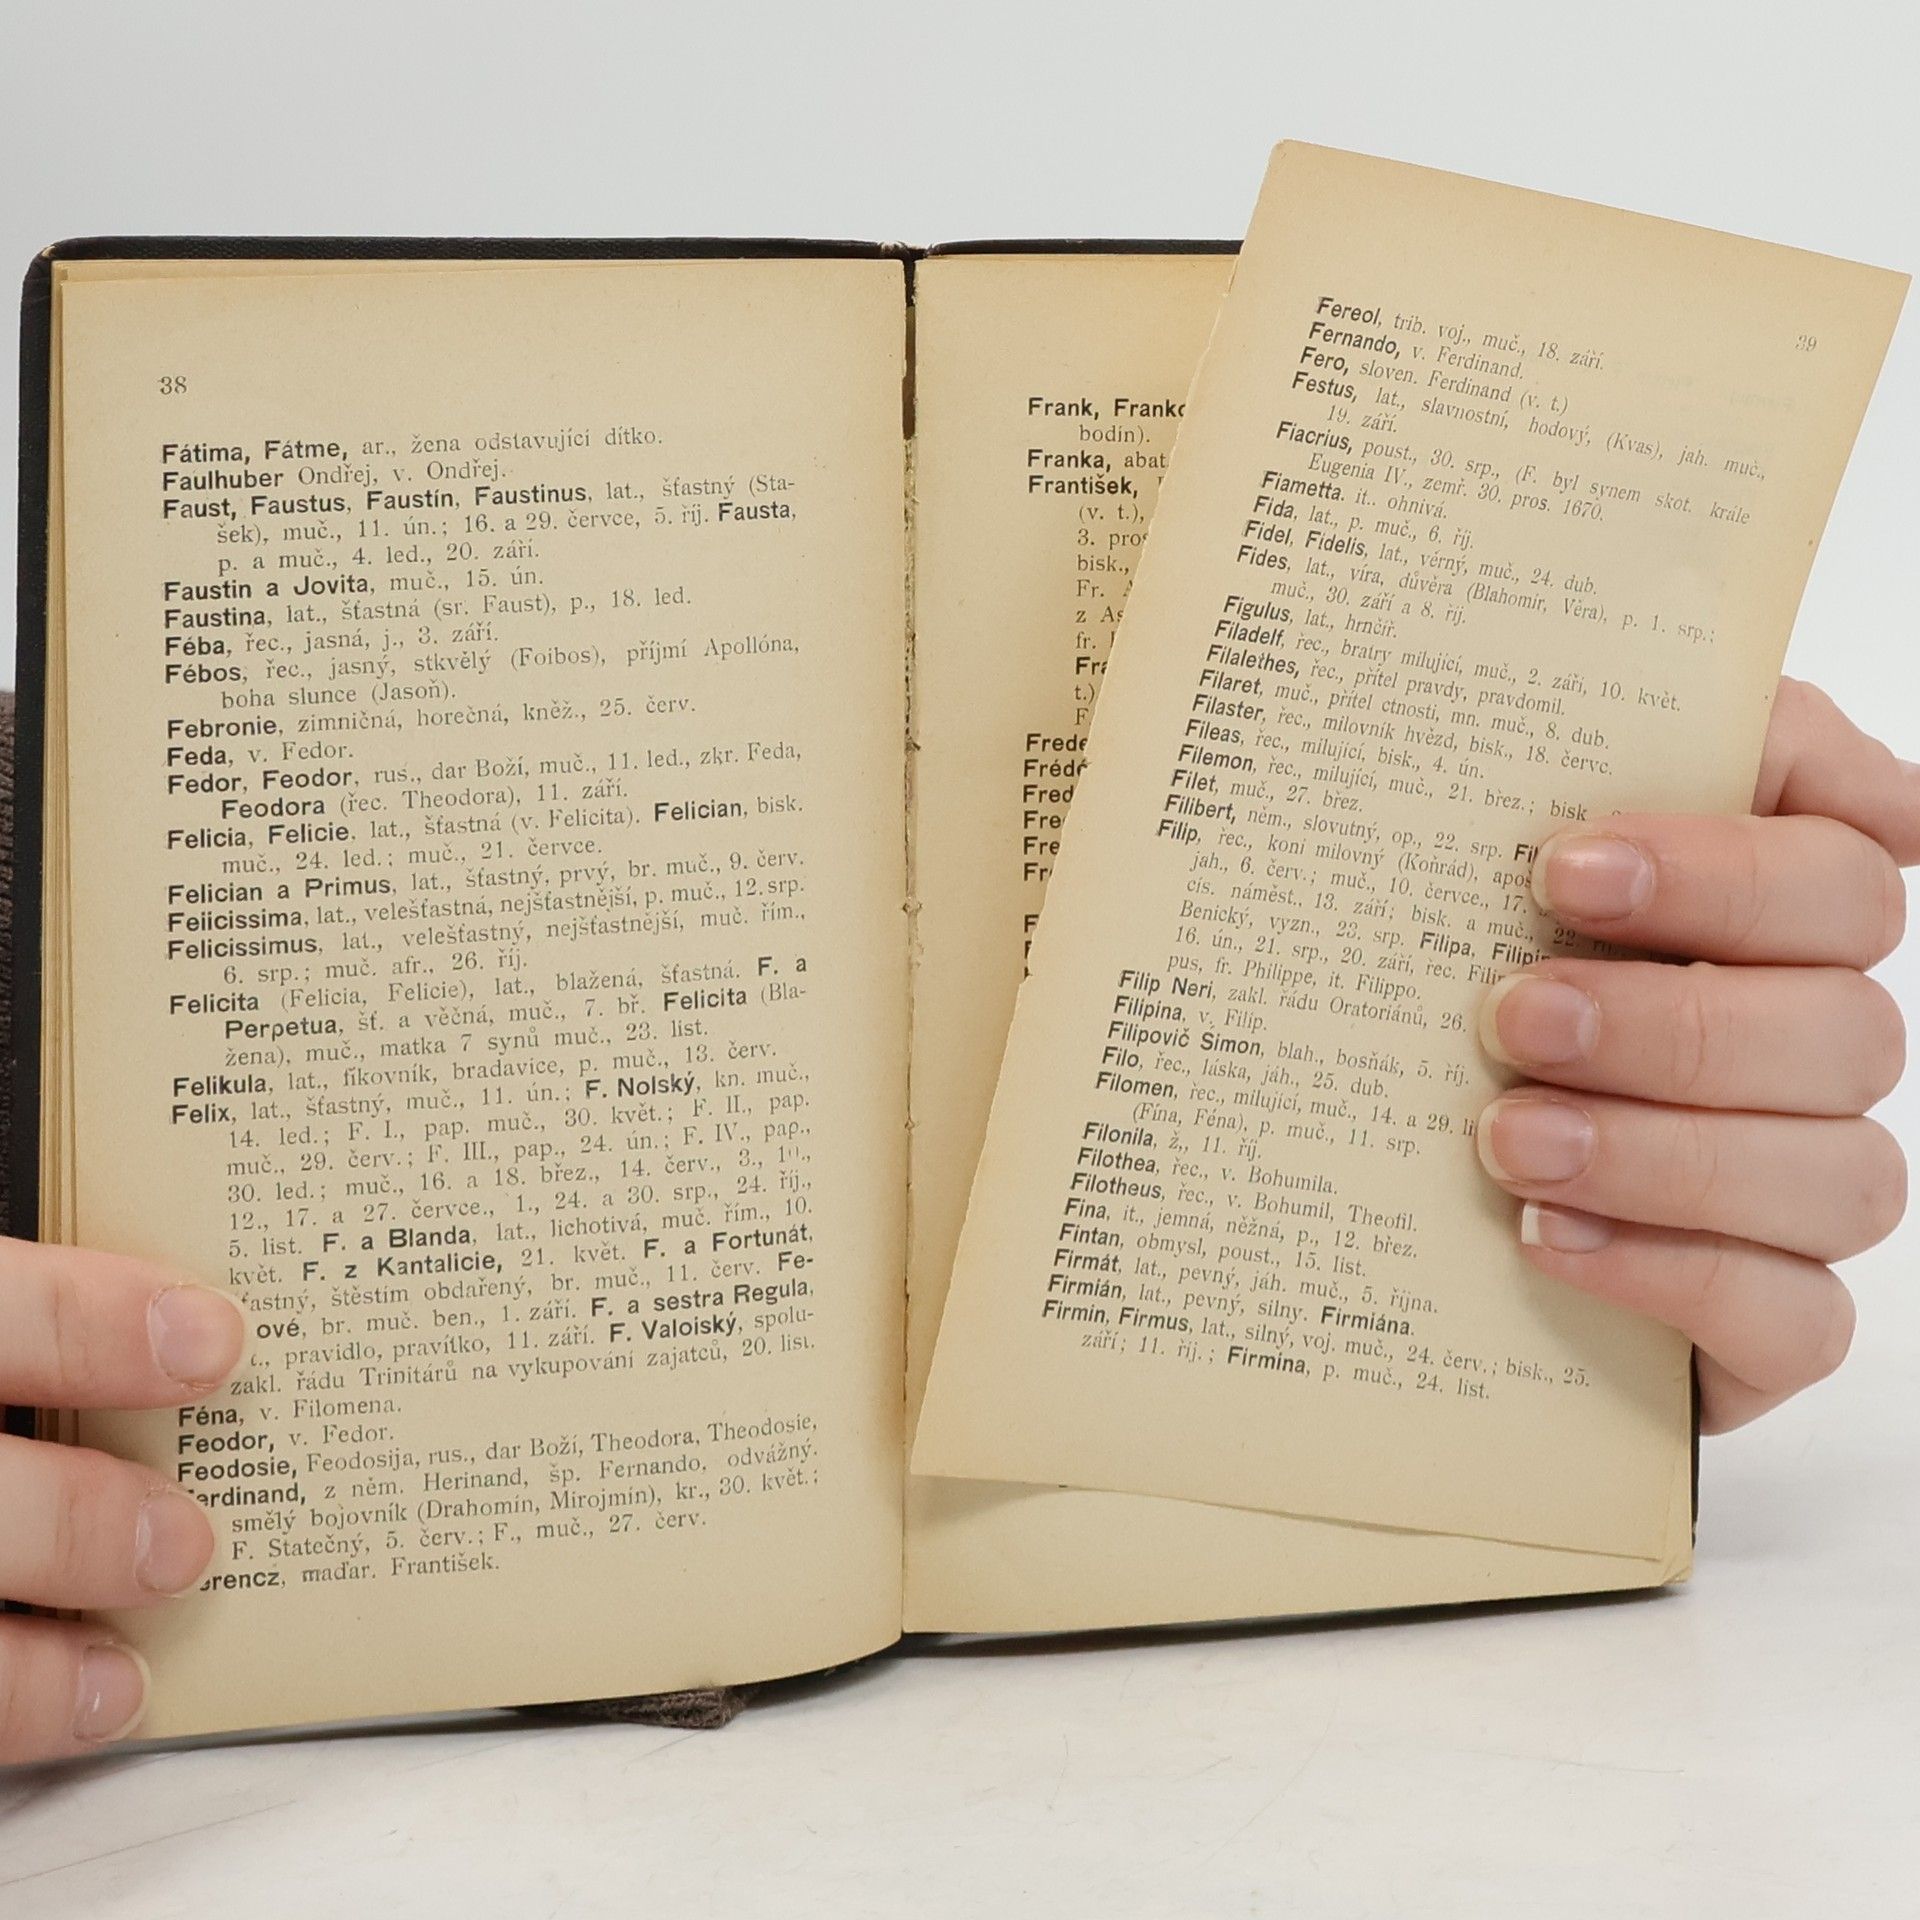 38
Fátima, Fátme, ar., žena odstavující dítko.
Faulhuber Ondřej, v. Ondřej.
Faust, Faustus, Faustín, Faustinus, lat., šťastný (Sta-
šek), muč., 11. ún.; 16. a 29. července, 5. říj. Fausta,
p. a muč., 4. led., 20. září.
Faustin a Jovita, muč., 15. ún.
Faustina, lat., šťastná (sr. Faust), p., 18. led.
Féba, řec., jasná, j., 3. září.
Fébos, řec., jasný, stkvělý (Foibos), příjmí Apollóna,
boha slunce (Jasoň).
Febronie, zimničná, horečná, kněž., 25. červ.
Feda, v. Fedor.
Fedor, Feodor, rus., dar Boží, muč., 11. led., zkr. Feda,
Feodora (řec. Theodora), 11. září.
Felicia, Felicie, lat., šťastná (v. Felicita). Felician, bisk.
muč., 24. led.; muč., 21. července.
Felician a Primus, lat., šťastný, prvý, br. muč., 9. červ.
Feiicissima, lat., velešťastná, nejšťastnější, p. muč., 12. srp.
Felicissimus, lat., velešťastný, nejšťastnější, muč. řím.,
6. srp.; muč. afr., 26. říj.
Felicita (Felicia, Felicie), lat., blažená, šťastná. F. a
Perpetua, šť. a věčná, muč., 7. bř. Felicita (Bla-
žena), muč., matka 7 synů muč., 23. list.
Felikula, lat., fíkovník, bradavice, p. muč., 13. červ.
Felix, lat., šťastný, muč., 11. ún.; F. Nolský, kn. muč.,
14. led.; F. I., pap. muč., 30. květ.; F. II., pap.
muč., 29. červ.; F. III., pap., 24. ún.; F. IV., pap.,
30. led.; muč., 16. a 18. břez., 14. červ., 3., 10.,
12., 17. a 27. července., 1., 24. a 30. srp., 24. říj.,
5. list. F. a Blanda, lat., lichotivá, muč. řím., 10.
květ. F. z Kantalicie, 21. květ. F. a Fortunát,
šťastný, štěstím obdařený, br. muč., 11. červ. Fe-
ové, br. muč. ben., 1. září. F. a sestra Regula,
pravidlo, pravítko, 11. září. F. Valoiský, spolu-
zakl. řádu Trinitárů na vykupování zajatců, 20. list.
Féna, v. Filomena.
Feodor, v. Fedor.
Feodosie, Feodosija, rus., dar Boží, Theodora, Theodosie,
erdinand, z něm. Herinand, šp. Fernando, odvážný.
smělý bojovník (Drahomín, Mirojmín), kr., 30. květ.;
F. Statečný, 5. červ.; F., muč., 27. červ.
erencz, maďar. František.
39
Fereol, trib. voj., muč., 18. září.
Fernando, v. Ferdinand.
Fero, sloven. Ferdinand (v. t.)
Festus, lat., slavnostní, hodový, (Kvas), jah. muč.,
19. září.
Fiacrius, poust., 30. srp., (F. byl synem skot. krále
Eugenia IV., zemř. 30. pros. 1670.
Fiametta. it.. ohnivá.
Fida, lat., p. muč., 6. říj.
Fidel, Fidelis, lat., věrný, muč., 24. dub.
Fides, lat., víra, důvěra (Blahomír, Věra), p. 1. srp.;
muč., 30. září a 8. říj.
Figulus, lat., hrnčíř.
Filadelf, řec., bratry milující, muč., 2. září, 10. květ.
Filalethes, řec., přítel pravdy, pravdomil.
Filaret, muč., přítel ctnosti, mn. muč., 8. dub.
Filaster, řec., milovník hvězd, bisk., 18. červc.
Fileas, řec., milující, bisk., 4. ún.
Filemon, řec., milující, muč., 21. břez.; bisk
Filet, muč., 27. břez.
Filibert, něm., slovutný, op., 22. srp. Fil
Filip, řec., koni milovný (Koňrád), apoš
jáh., 6. červ.; muč., 10. července., 17.
cís. náměst., 13. září; bisk. a muč., 22. říj.
Benický, vyzn., 23. srp. Filipa, Filipin
16. ún., 21. srp., 20. září, řec. Filip
pus, fr. Philippe, it. Filippo.
Filip Neri, zakl. řádu Oratoriánů, 26.
Filipina, v. Filip.
Filipovič Šimon, blah., bosňák, 5. říj.
Filo, řec., láska, jáh., 25. dub.
Filomen, řec., milující, muč., 14. a 29. li
(Fína, Féna), p. muč., 11. srp.
Filonila, ž,, 11. říj.
Filothea, řec., v. Bohumila.
Filotheus, řec., v. Bohumil, Theofil.
Fina, it., jemná, něžná, p., 12. břez.
Fintan, obmysl, poust., 15. list.
Firmát, lat., pevný, jáh. muč., 5. října.
Firmián, lat., pevný, silny. Firmiána.
Firmin, Firmus, lat., silný, voj. muč., 24. červ.; bisk., 25.
září; 11. říj.; Firmina, p. muč., 24. list.
Frank, Franko
bodín).
Franka, abat
František,
(v. t.),
3. pros
bisk.,
Fr.
z As
fr.
Fra
t.)
F
Frede
Frédé
Fred
Fre
Fre
Fr